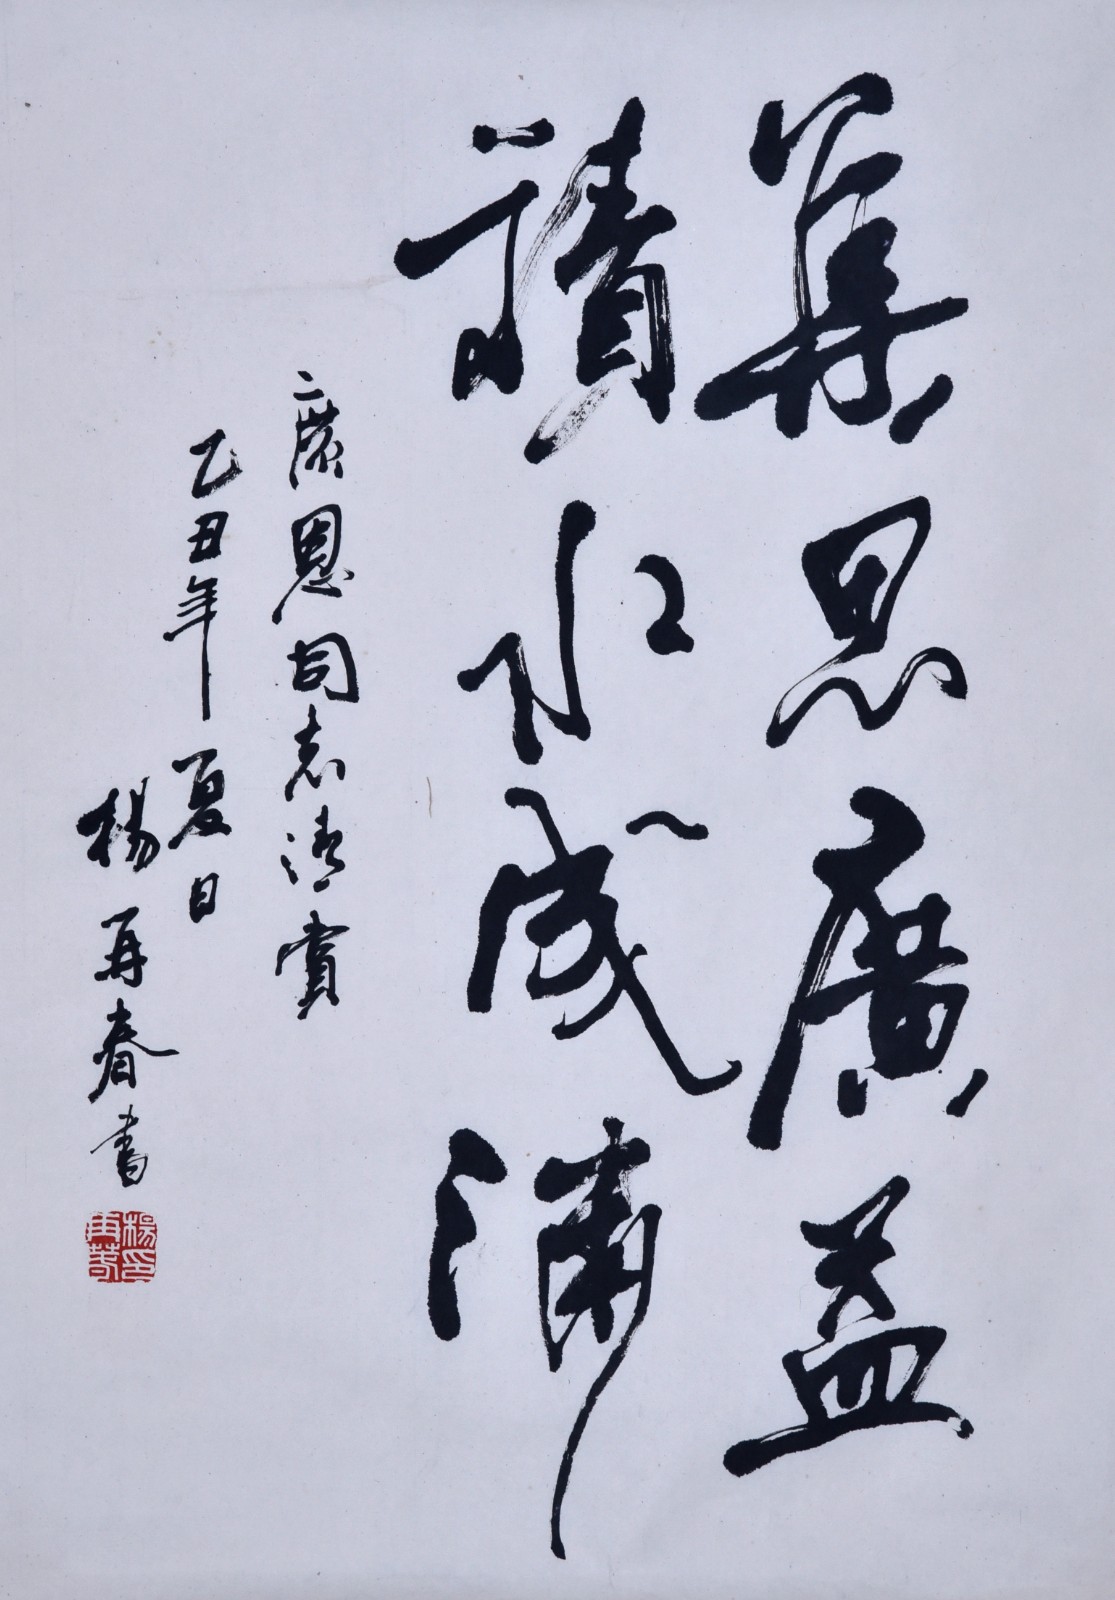 集思廣益
積水成淵
廣恩同志清賞
乙丑年夏日
楊再春書
楊印
再春